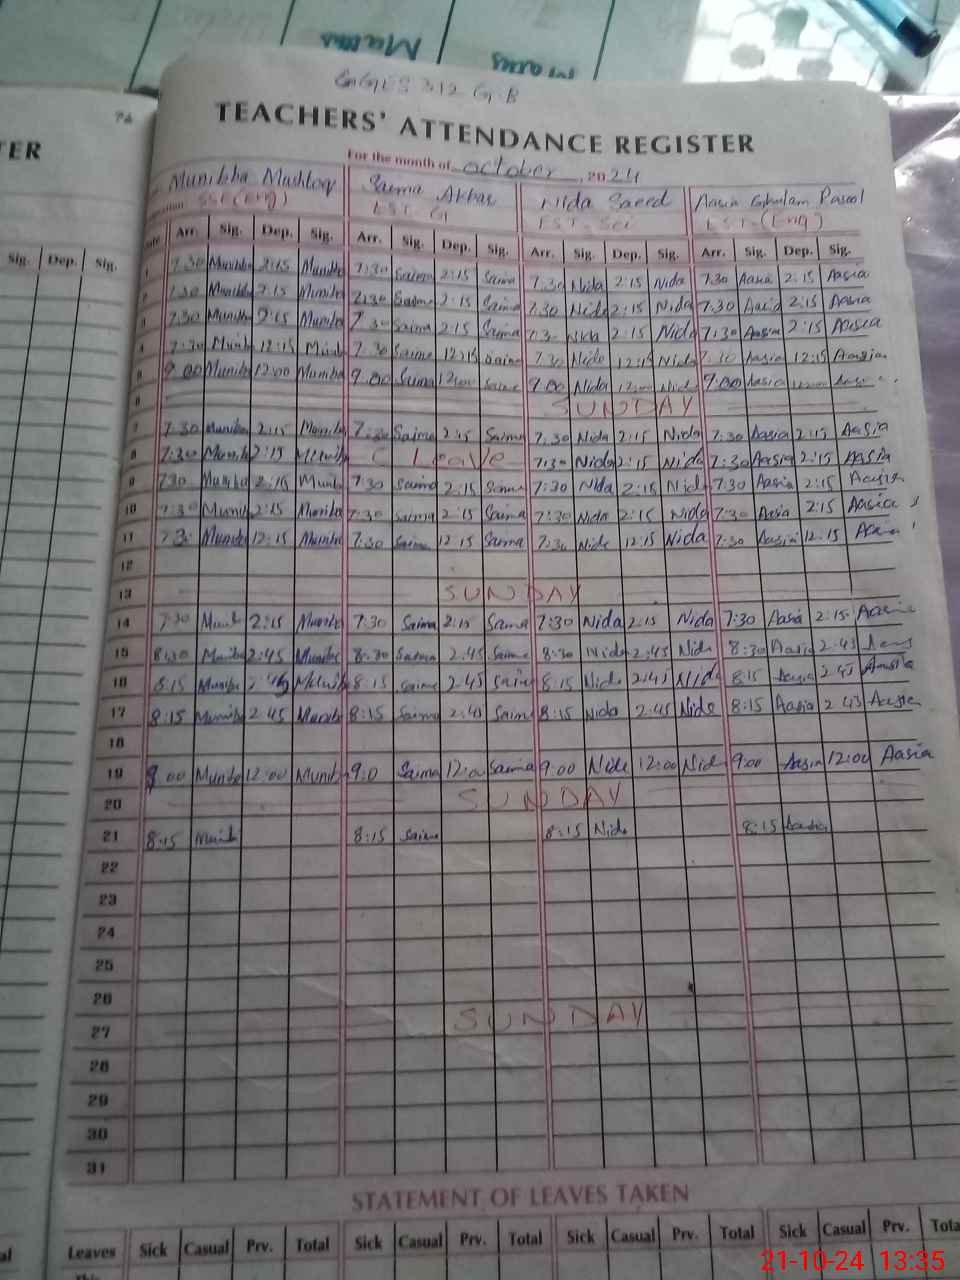 Maths
Maths
76
GGES 312 G.B
TER
TEACHERS' ATTENDANCE REGISTER
For the month of October, 2024
Munibha Mushtaq Saima Akbar Nida Saeed Aasia Ghulam Rasool
SSE (Eng) EST G EST-Sci EST-(Eng)
Sig. Dep. Sig.
Arr. Sig. Dep. Sig. Arr. Sig. Dep. Sig. Arr. Sig. Dep. Sig. Arr. Sig. Dep. Sig.
1 7:30 2:15 7:30 Saima 2:15 Saima 7:30 Nida 2:15 Nida 7:30 Aasia 2:15 Aasia
2 7:30 2:15 7:30 Saima 2:15 Saima 7:30 Nida 2:15 Nida 7:30 Aasia 2:15 Aasia
3 7:30 2:15 7:30 Saima 2:15 Saima 7:30 Nida 2:15 Nida 7:30 Aasia 2:15 Aasia
4 7:30 12:15 7:30 Saima 12:15 Saima 7:30 Nida 12:15 Nida 7:30 Aasia 12:15 Aasia
5 9:00 12:00 9:00 Saima 12:00 Saima 9:00 Nida 12:00 Nida 9:00 Aasia 12:00 Aasia
6 SUNDAY
7 7:30 2:15 7:30 Saima 2:15 Saima 7:30 Nida 2:15 Nida 7:30 Aasia 2:15 Aasia
8 7:30 2:15 C Leave 7:30 Nida 2:15 Nida 7:30 Aasia 2:15 Aasia
9 7:30 2:15 7:30 Saima 2:15 Saima 7:30 Nida 2:15 Nida 7:30 Aasia 2:15 Aasia
10 7:30 2:15 7:30 Saima 2:15 Saima 7:30 Nida 2:15 Nida 7:30 Aasia 2:15 Aasia
11 7:30 12:15 7:30 Saima 12:15 Saima 7:30 Nida 12:15 Nida 7:30 Aasia 12:15 Aasia
12
13 SUNDAY
14 7:30 2:15 7:30 Saima 2:15 Saima 7:30 Nida 2:15 Nida 7:30 Aasia 2:15 Aasia
15 8:30 2:45 8:30 Saima 2:45 Saima 8:30 Nida 2:45 Nida 8:30 Aasia 2:45
16 8:15 2:45 8:15 Saima 2:45 Saima 8:15 Nida 2:45 Nida 8:15 Aasia 2:45 Aasia
17 8:15 2:45 8:15 Saima 2:45 Saima 8:15 Nida 2:45 Nida 8:15 Aasia 2:45 Aasia
18
19 9:00 12:00 9:0 Saima 12:0 Saima 9:00 Nida 12:00 Nida 9:00 Aasia 12:00 Aasia
20 SUNDAY
21 8:15 8:15 Saima 8:15 Nida 8:15 Aasia
22
23
24
25
26
27 SUNDAY
28
29
30
31
STATEMENT OF LEAVES TAKEN
Leaves Sick Casual Prv. Total Sick Casual Prv. Total Sick Casual Prv. Total Sick Casual Prv. Tota
21-10-24 13:35